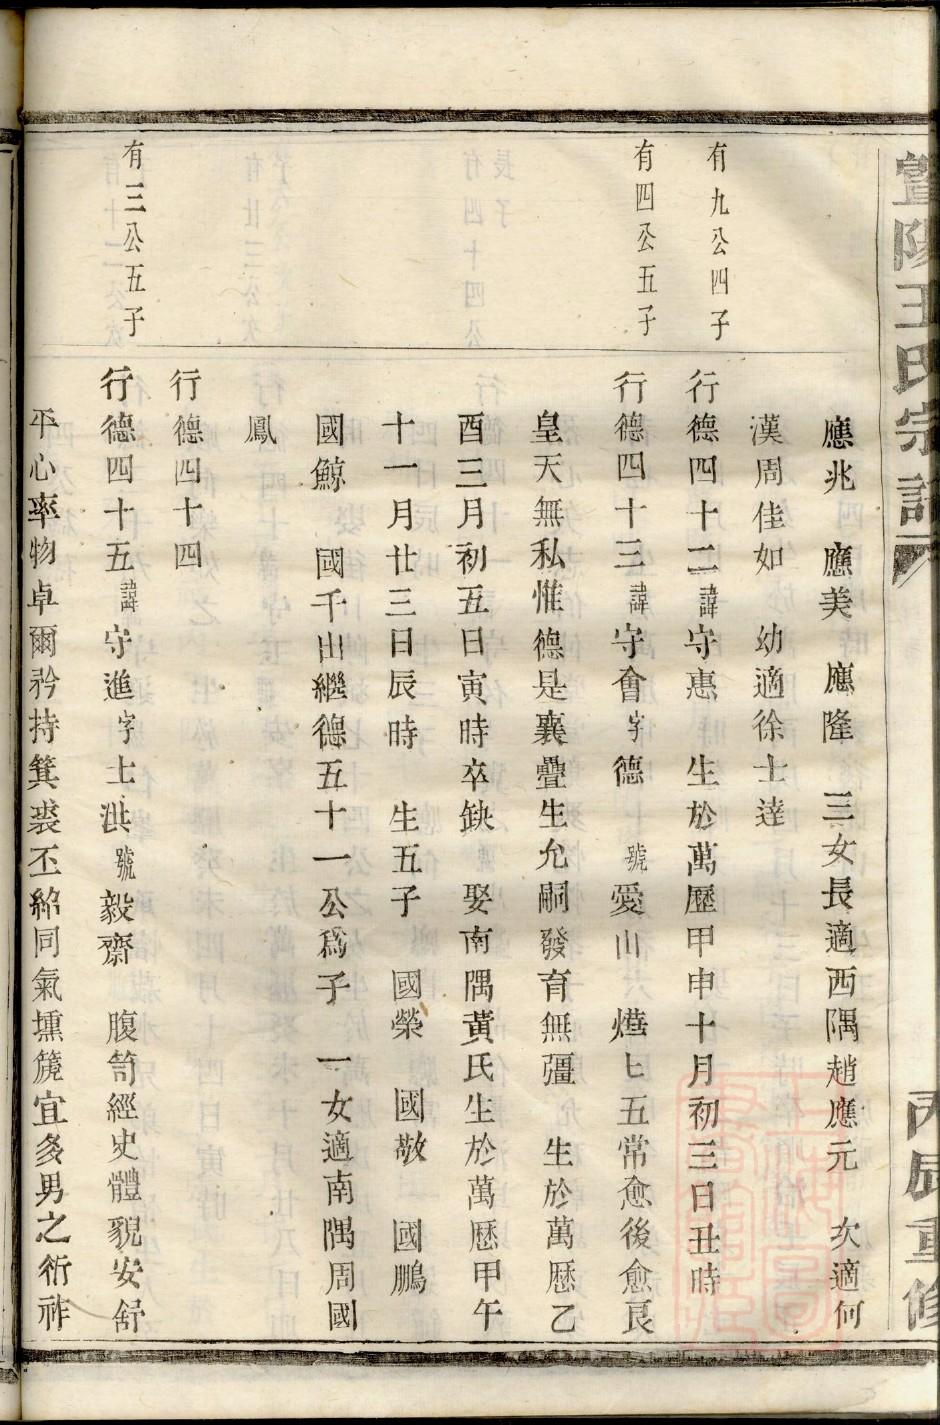 暨陽王氏宗譜
丙辰重修
應兆　應美　應隆　三女長適西隅趙應元　次適何
漢周佳如　幼適徐士達
有九公四子
行德四十二諱守惠　生於萬歷甲申十月初三日丑時
有四公五子
行德四十三諱守會字德　號愛山　五常愈後愈良
皇天無私惟德是襄疊生允嗣發育無彊　生於萬歷乙
酉三月初五日寅時卒缺　娶南隅黃氏生於萬歷甲午
十一月廿三日辰時　生五子　國榮　國敬　國鵬
國鯨　國千出繼德五十一公爲子　一女適南隅周國
鳳
行德四十四
有三公五子
行德四十五諱守進字士洪　號毅齋　腹笥經史體貌安舒
平心率物卓爾矜持箕裘丕紹同氣壎篪宜多男之衍祚